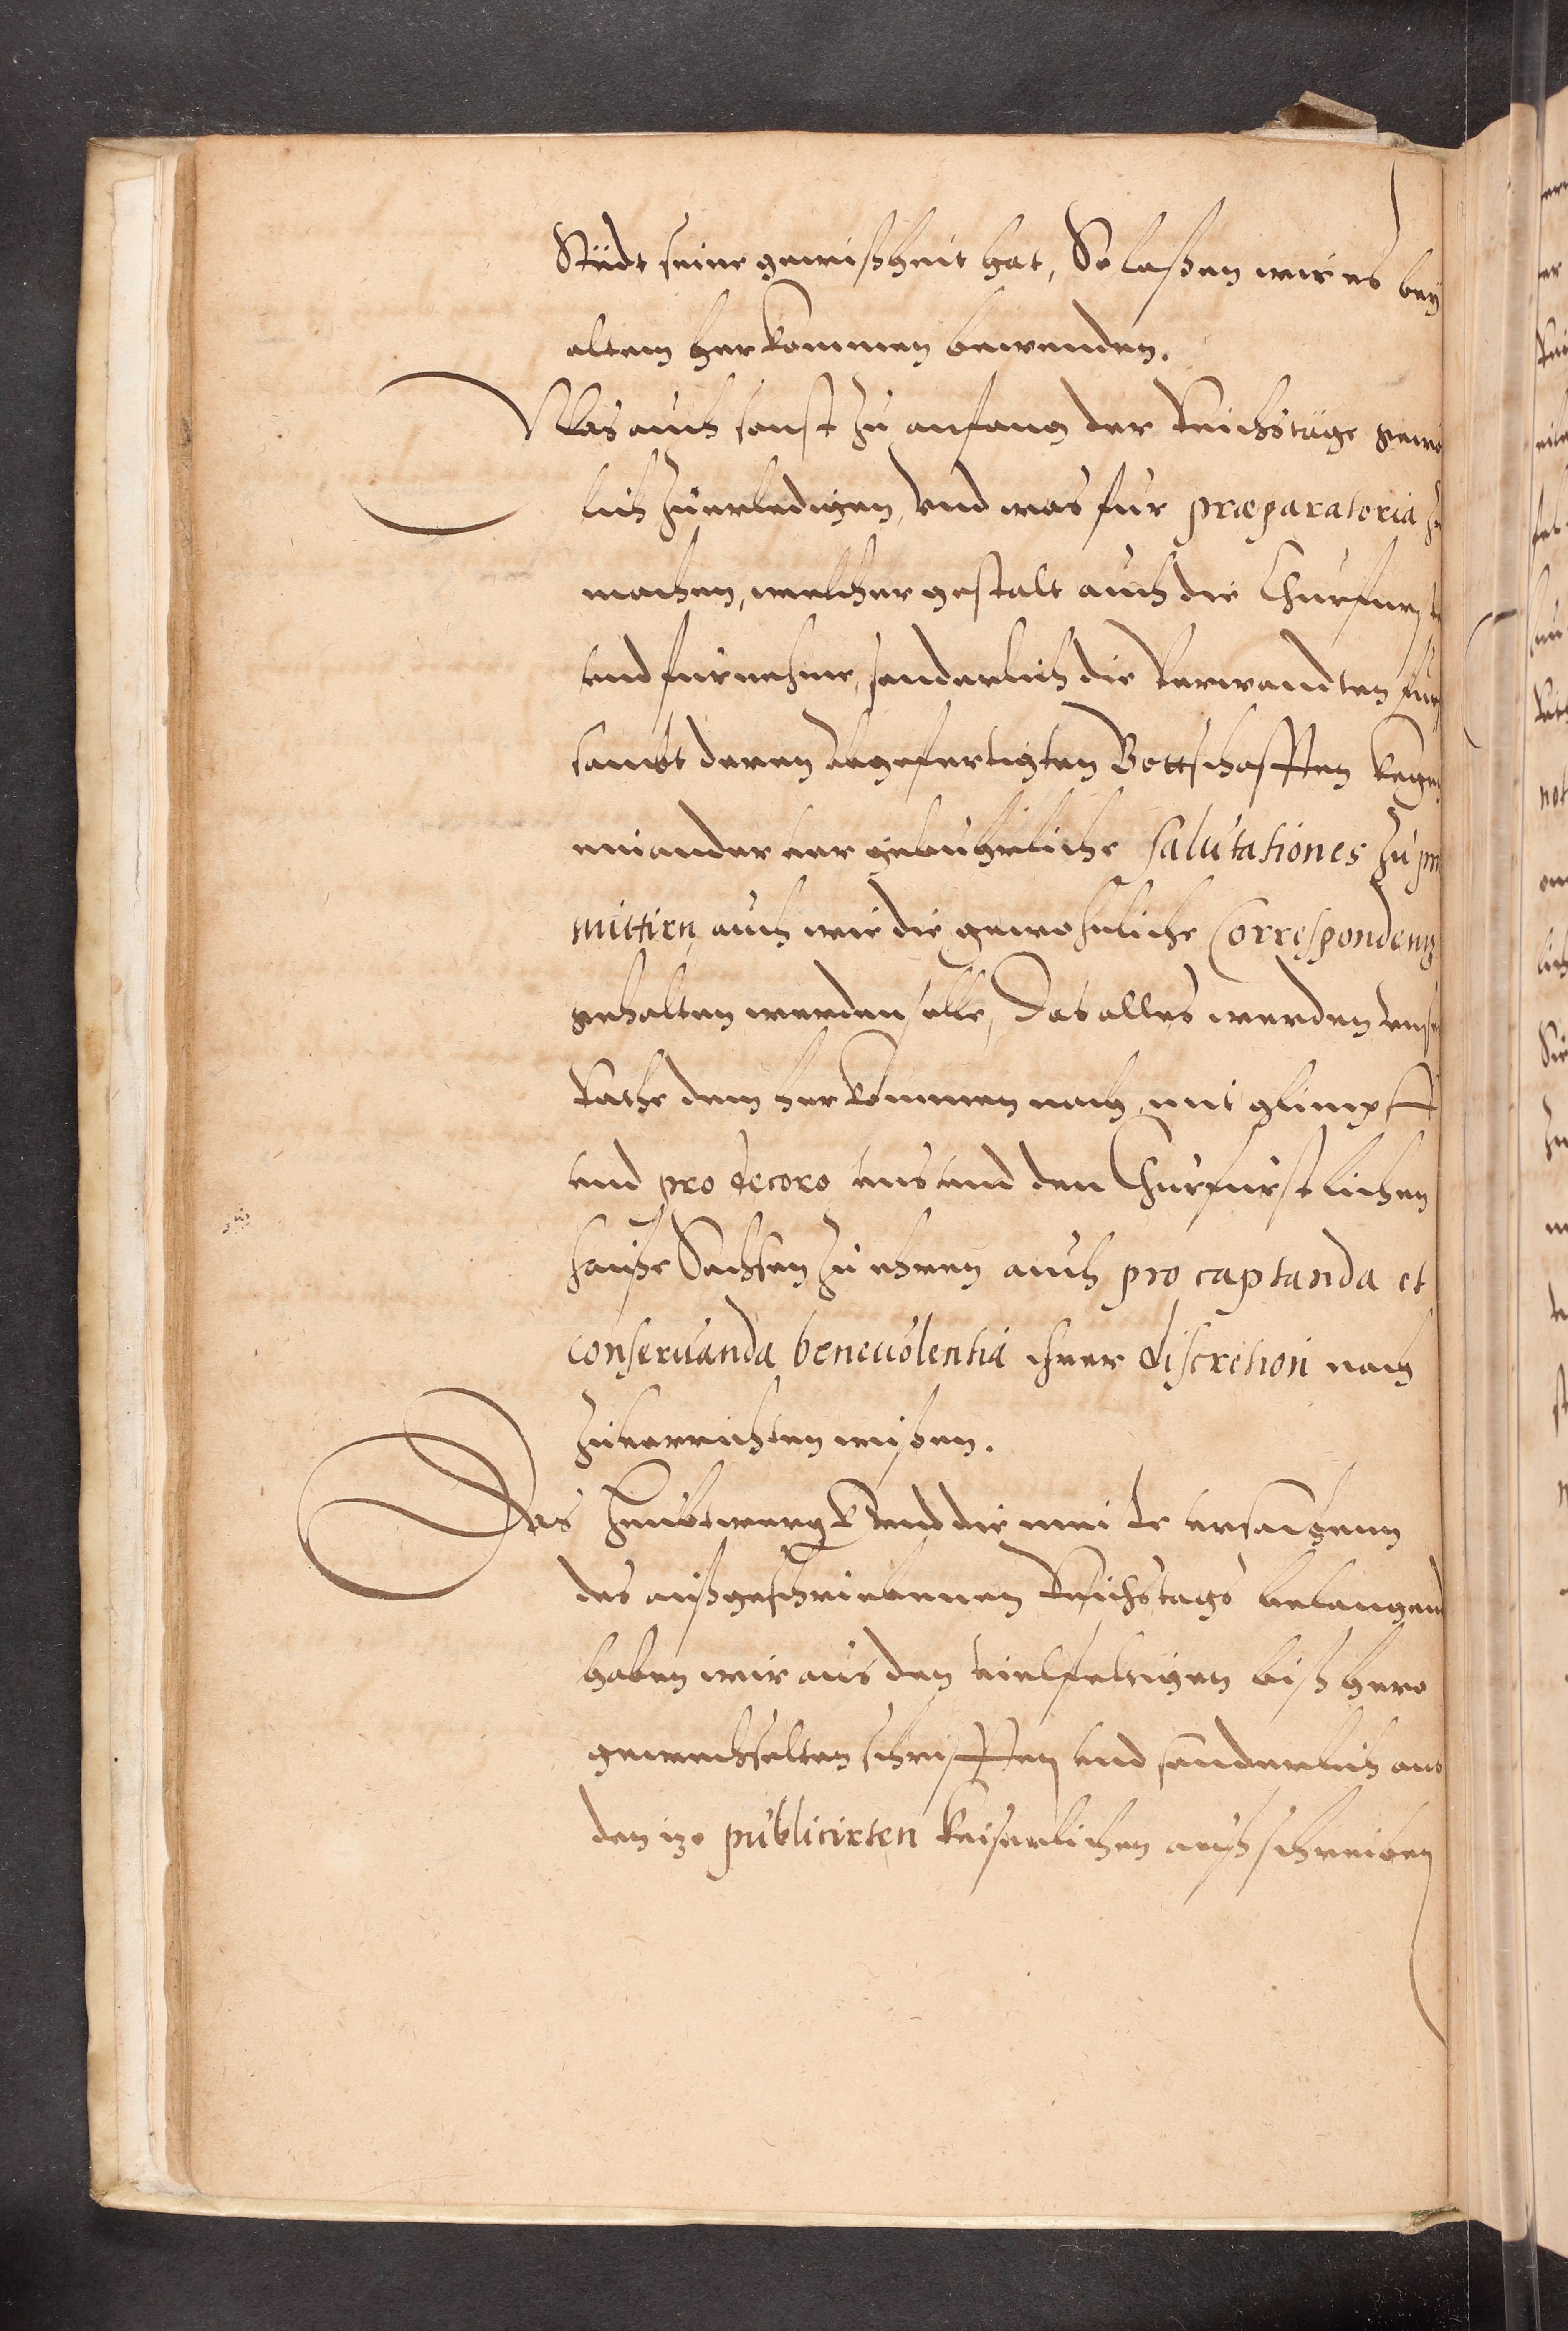 Stedt seine gewißheit hat, So laßen wir es bey
altem herkommen bewenden.
Was auch sonst zu anfang der Reichstäge gewo
lich zuerledigen, vnd was fur præparatoria zu
machen, welcher gestalt auch die Churfurst
vnd furnehme, sonderlich die verwandten fur
sambt deren abgefertigten Bottschafften kegen
einander vor gebuhrliche salutationes zu pre
mittirn, auch wie die gewohnliche Correspondentz
gehalten werden solle, Das alles werden vnse
Rathe dem herkommen nach, mit glimpff
vnd pro decoro vns vnd den Churfurstlichen
hauße Sachsen zu ehren auch pro captanda et
conseruanda beneuolentia ihrer discretion nach
zuuerrichten wißen.
Das heubtwergk vnd die vrsachenn
des außgeschriebenen Reichstags belangend
haben wir aus den vielfeltigen bißhero
gewechselten schrifften vnd sonderlich aus
den izo publicirten Keiserlichen außschreiben